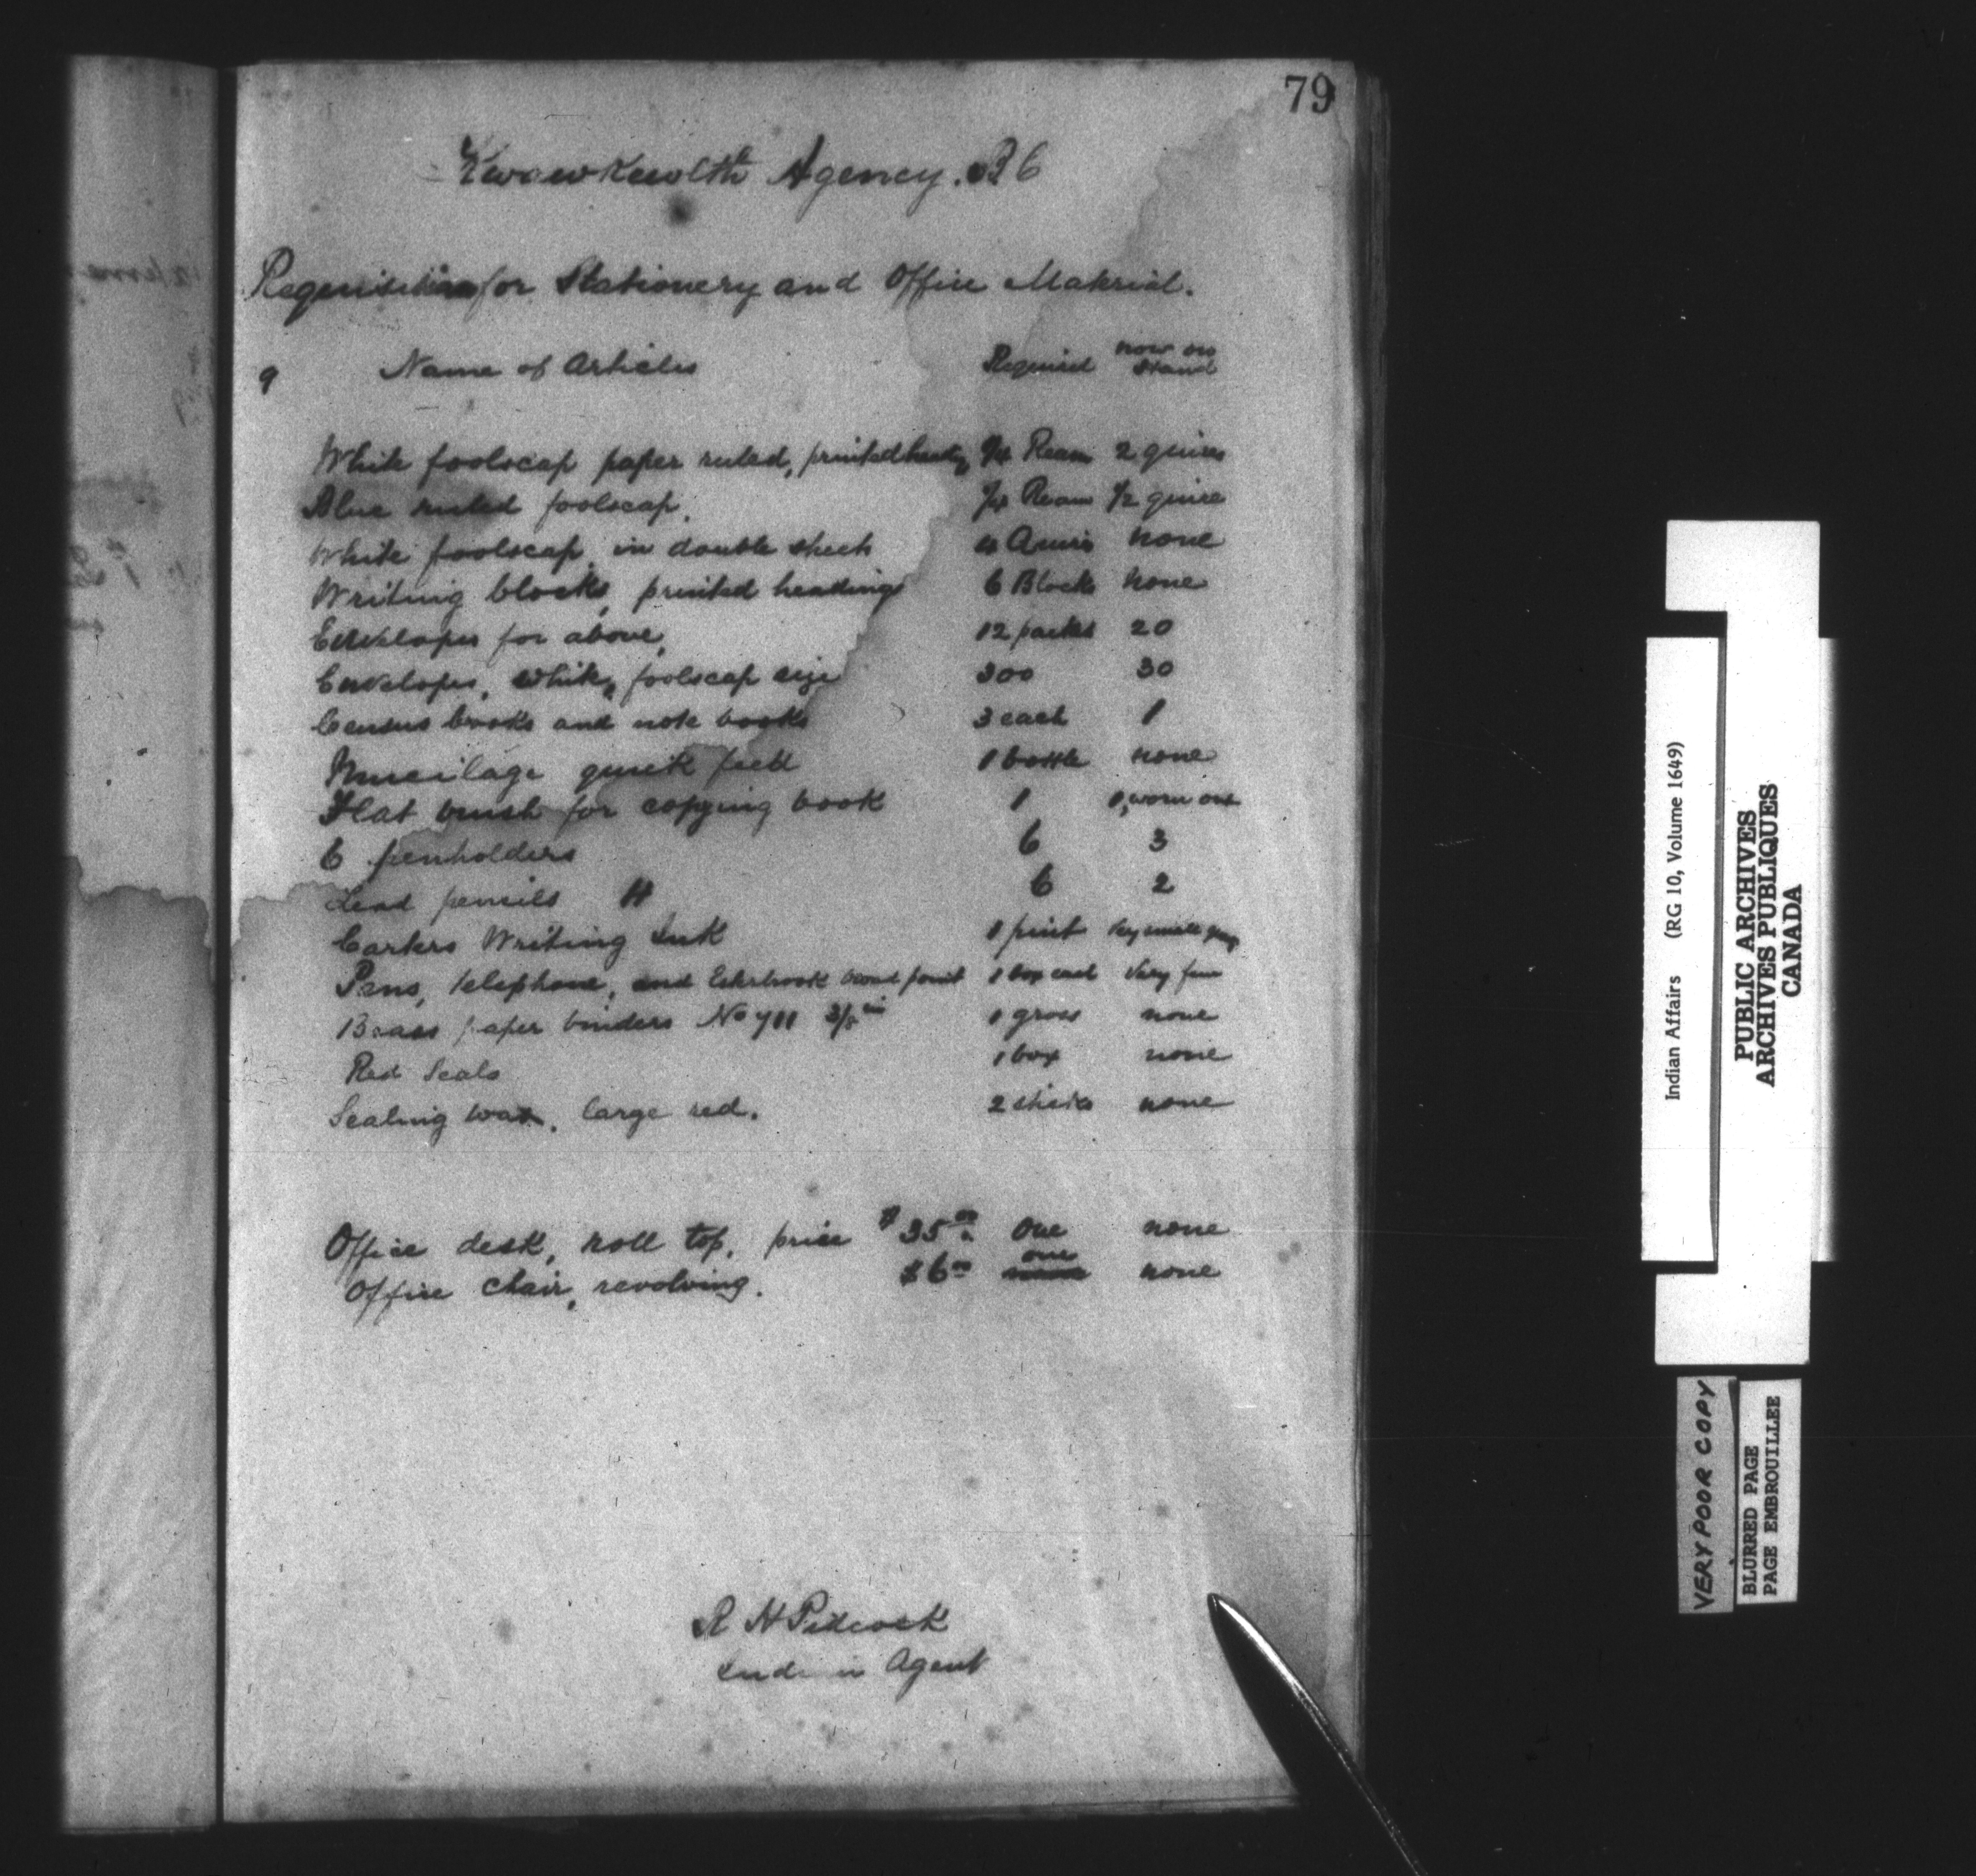 79
Kwawkewlth Agency. BC
Requisition for Stationery and Office Material.
9 Name of Articles Required now on Hand
White foolscap paper ruled, printed heading 1/4 Ream 2 quires
Blue ruled foolscap. 1/4 Ream 1/2 quire
White foolscap in double sheets 4 Quires none
Writing blocks, printed headings 6 Blocks none
Envelopes for above, 12 packs 20
Envelopes, white, foolscap size 300 30
Census books and note books 3 each 1
Mucilage quick 1 bottle none
Flat brush for copying book 1 1, worn out
6 penholders 6 3
Lead pencils H 6 2
Carters Writing Ink 1 pint
Pens, telephone, and Esterbrook broad point 1 box each Very few
Brass paper binders No 711 3/8 in 1 gross none
Red Seals 1 box none
Sealing wax, large red. 2 sticks none
Office desk, roll top, price $35.00 One none
Office chair, revolving. $6.00 one none
R H Pidcock
Indian Agent
Indian Affairs (RG 10, Volume 1649)
PUBLIC ARCHIVES
ARCHIVES PUBLIQUES
CANADA
VERY POOR COPY
BLURRED PAGE
PAGE EMBROUILLEE